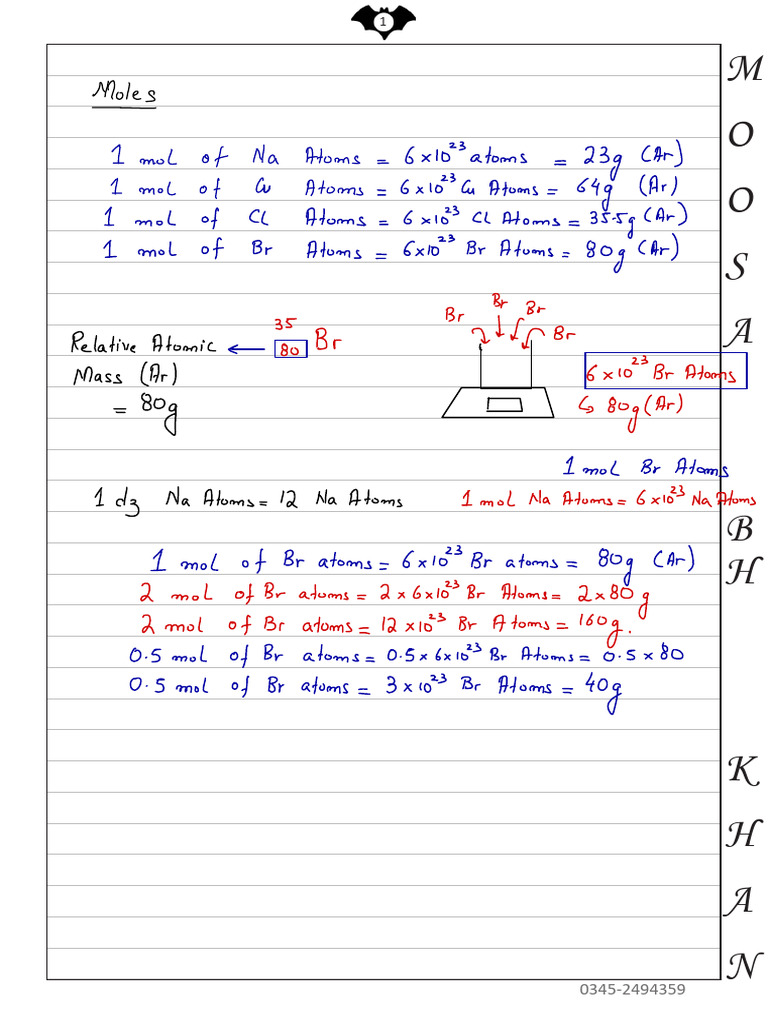 1
Moles
1 mol of Na Atoms = 6×10²³ atoms = 23g (Ar)
1 mol of Cu Atoms = 6×10²³ Cu Atoms = 64g (Ar)
1 mol of Cl Atoms = 6×10²³ Cl Atoms = 35.5g (Ar)
1 mol of Br Atoms = 6×10²³ Br Atoms = 80g (Ar)
Br Br Br Br
35
Relative Atomic ← 80 Br
Mass (Ar)
= 80g
6×10²³ Br Atoms
↳ 80g (Ar)
1 mol Br Atoms
1 dz Na Atoms = 12 Na Atoms 1 mol Na Atoms = 6×10²³ Na Atoms
1 mol of Br atoms = 6×10²³ Br atoms = 80g (Ar)
2 mol of Br atoms = 2×6×10²³ Br Atoms = 2×80g
2 mol of Br atoms = 12×10²³ Br Atoms = 160g.
0.5 mol of Br atoms = 0.5×6×10²³ Br Atoms = 0.5×80
0.5 mol of Br atoms = 3×10²³ Br Atoms = 40g
MOOSA BHKHAN
0345-2494359